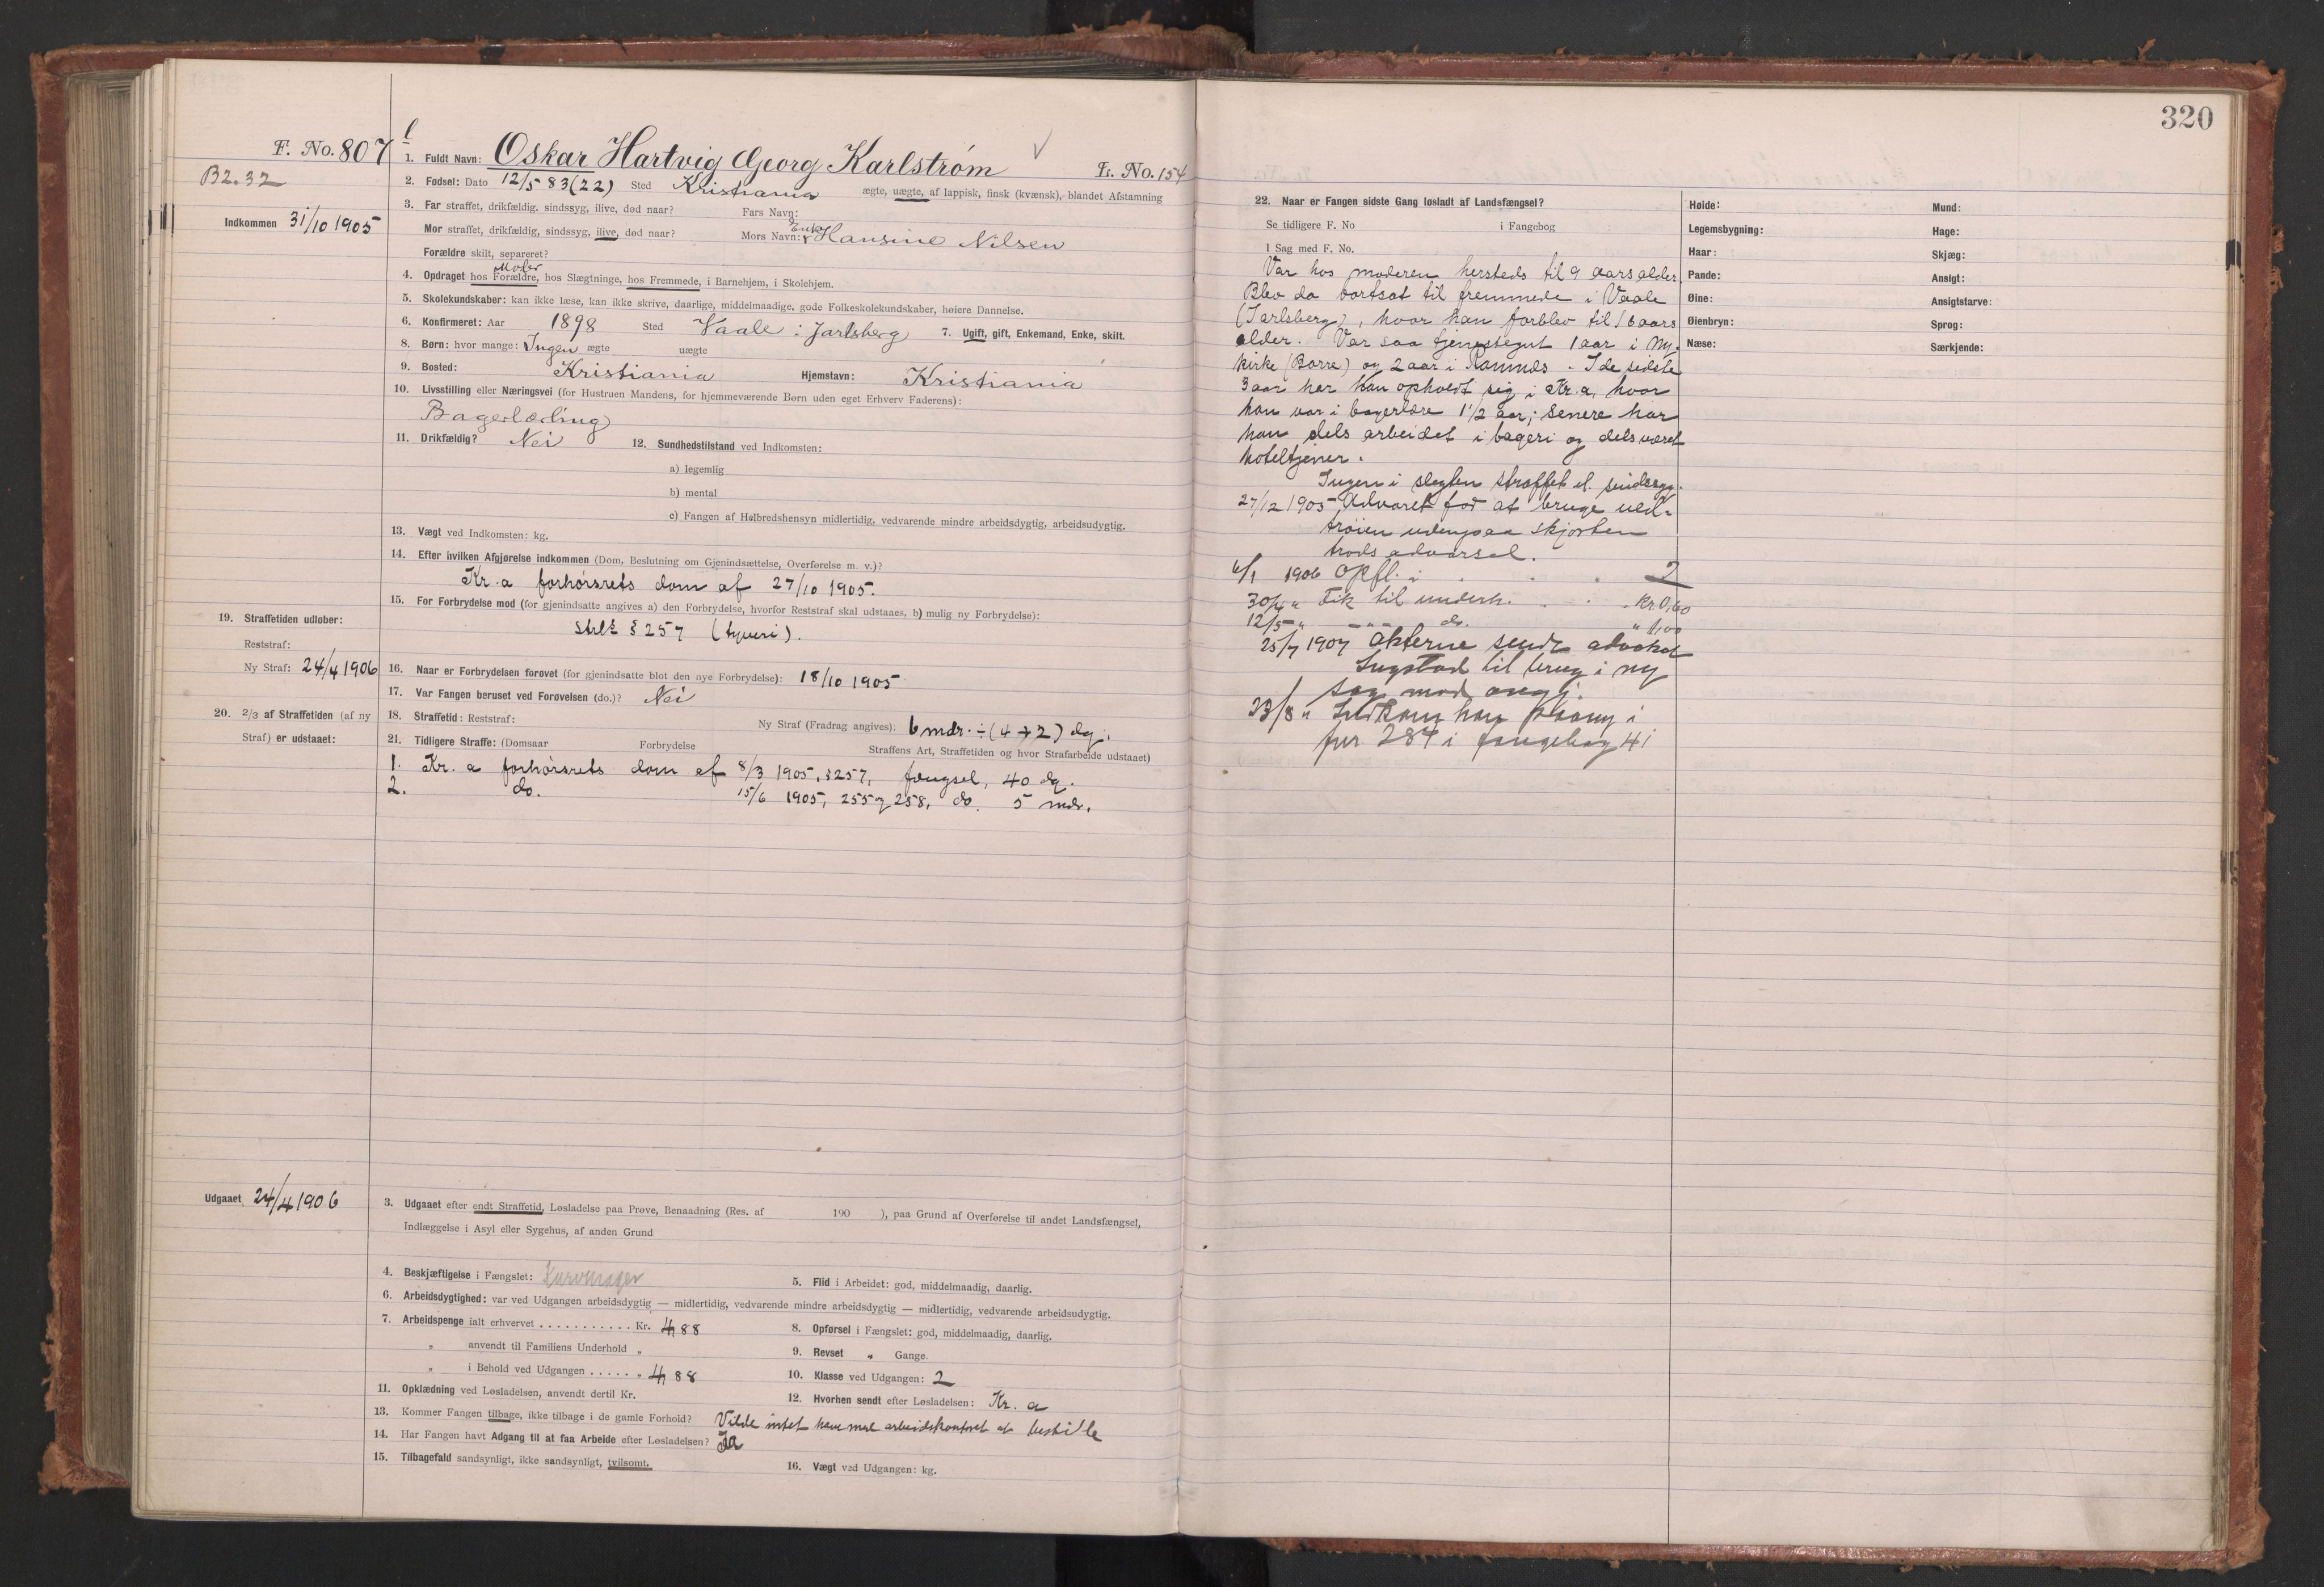 320
F. No. 807
B2.32
Indkommen 31/10 1905
1. Fuldt Navn: Oskar Hartvig Georg Karlstrøm
L. No. 154
2. Fødsel: Dato 12/5 83 (22) Sted Kristiania ægte, uægte, af lappisk, finsk (kvænsk), blandet Afstamning
3. Far straffet, drikfældig, sindssyg, ilive, død naar? Fars Navn:
Mor straffet, drikfældig, sindssyg, ilive, død naar? Mors Navn: Enke Hansine Nilsen
Forældre skilt, separeret?
Moder
4. Opdraget hos Forældre, hos Slægtninge, hos Fremmede, i Barnehjem, i Skolehjem.
5. Skolekundskaber: kan ikke læse, kan ikke skrive, daarlige, middelmaadige, gode Folkeskolekundskaber, høiere Dannelse.
6. Konfirmeret: Aar 1898 Sted Vaale i Jarlsberg 7. Ugift, gift, Enkemand, Enke, skilt.
8. Børn: hvor mange: Ingen ægte uægte
9. Bosted: Kristiania Hjemstavn: Kristiania
10. Livsstilling eller Næringsvei (for Hustruen Mandens, for hjemmeværende Børn uden eget Erhverv Faderens):
Bagerlærling
11. Drikfældig? Nei 12. Sundhedstilstand ved Indkomsten:
a) legemlig
b) mental
c) Fangen af Helbredshensyn midlertidig, vedvarende mindre arbeidsdygtig, arbeidsudygtig.
13. Vægt ved Indkomsten: kg.
14. Efter hvilken Afgjørelse indkommen (Dom, Beslutning om Gjenindsættelse, Overførelse m. v.)?
Kr.a forhørsrets dom af 27/10 1905.
15. For Forbrydelse mod (for gjenindsatte angives a) den Forbrydelse, hvorfor Reststraf skal udstaaes, b) mulig ny Forbrydelse):
Strl. § 257 (tyveri).
19. Straffetiden udløber:
Reststraf:
Ny Straf: 24/4 1906
16. Naar er Forbrydelsen forøvet (for gjenindsatte blot den nye Forbrydelse): 18/10 1905
17. Var Fangen beruset ved Forøvelsen (do.)? Nei
20. 2/3 af Straffetiden (af ny
Straf) er udstaaet:
18. Straffetid: Reststraf: Ny Straf (Fradrag angives): 6 mdr. ÷ (4 + 2) dg.
21. Tidligere Straffe: (Domsaar Forbrydelse Straffens Art, Straffetiden og hvor Strafarbeide udstaaet)
1. Kr. a forhørsrets dom af 8/3 1905, § 257, fængsel, 40 dg.
2. do. 15/6 1905, 255 og 258, do. 5 mdr.
Udgaaet 24/4 1906
3. Udgaaet efter endt Straffetid, Løsladelse paa Prøve, Benaadning (Res. af 190 ), paa Grund af Overførelse til andet Landsfængsel,
Indlæggelse i Asyl eller Sygehus, af anden Grund
4. Beskjæftigelse i Fængslet: Kurvmager 5. Flid i Arbeidet: god, middelmaadig, daarlig.
6. Arbeidsdygtighed: var ved Udgangen arbeidsdygtig — midlertidig, vedvarende mindre arbeidsdygtig — midlertidig, vedvarende arbeidsudygtig.
7. Arbeidspenge ialt erhvervet . . . . . . . . . . . Kr. 4,88 8. Opførsel i Fængslet: god, middelmaadig, daarlig.
" anvendt til Familiens Underhold " 9. Revset " Gange.
" i Behold ved Udgangen . . . . . . " 4,88 10. Klasse ved Udgangen: 2
11. Opklædning ved Løsladelsen, anvendt dertil Kr. 12. Hvorhen sendt efter Løsladelsen: Kr. a
13. Kommer Fangen tilbage, ikke tilbage i de gamle Forhold? Vilde intet have med arbeidskontoret at bestille
14. Har Fangen havt Adgang til at faa Arbeide efter Løsladelsen? Ja
15. Tilbagefald sandsynligt, ikke sandsynligt, tvilsomt. 16. Vægt ved Udgangen: kg.
22. Naar er Fangen sidste Gang løsladt af Landsfængsel?
Se tidligere F. No i Fangebog
I Sag med F. No.
Var hos moderen hersteds til 9 aars alder.
Blev da bortsat til fremmede i Vaale
(Jarlsberg), hvor han forblev til 16 aars
alder. Var saa tjenestegut 1 aar i Ny-
kirke (Borre) og 2 aar i Ramnes. I de sidste
3 aar har han opholdt sig i Kr.a, hvor
han var i bagerlære 1 1/2 aar; senere har
han dels arbeidet i bageri og dels været
hoteltjener.
Ingen i slegten straffet el. sindssyg.
27/12 1905 Advaret for at bruge uld-
trøien udenpaa skjorten
trods advarsel.
6/1 1906 Opfl. i . . . 2
30/4 " Fik til underh. . . . Kr. 0,60
12/5 " — " — do. " 1,00
25/7 1907 Akterne sendt advokat
til brug i ny
sag mod angj.
23/8 " Indkom han paany i
fnr 284 i fangebog 41
Høide:
Legemsbygning:
Haar:
Pande:
Øine:
Øienbryn:
Næse:
Mund:
Hage:
Skjæg:
Ansigt:
Ansigtsfarve:
Sprog:
Særkjende: